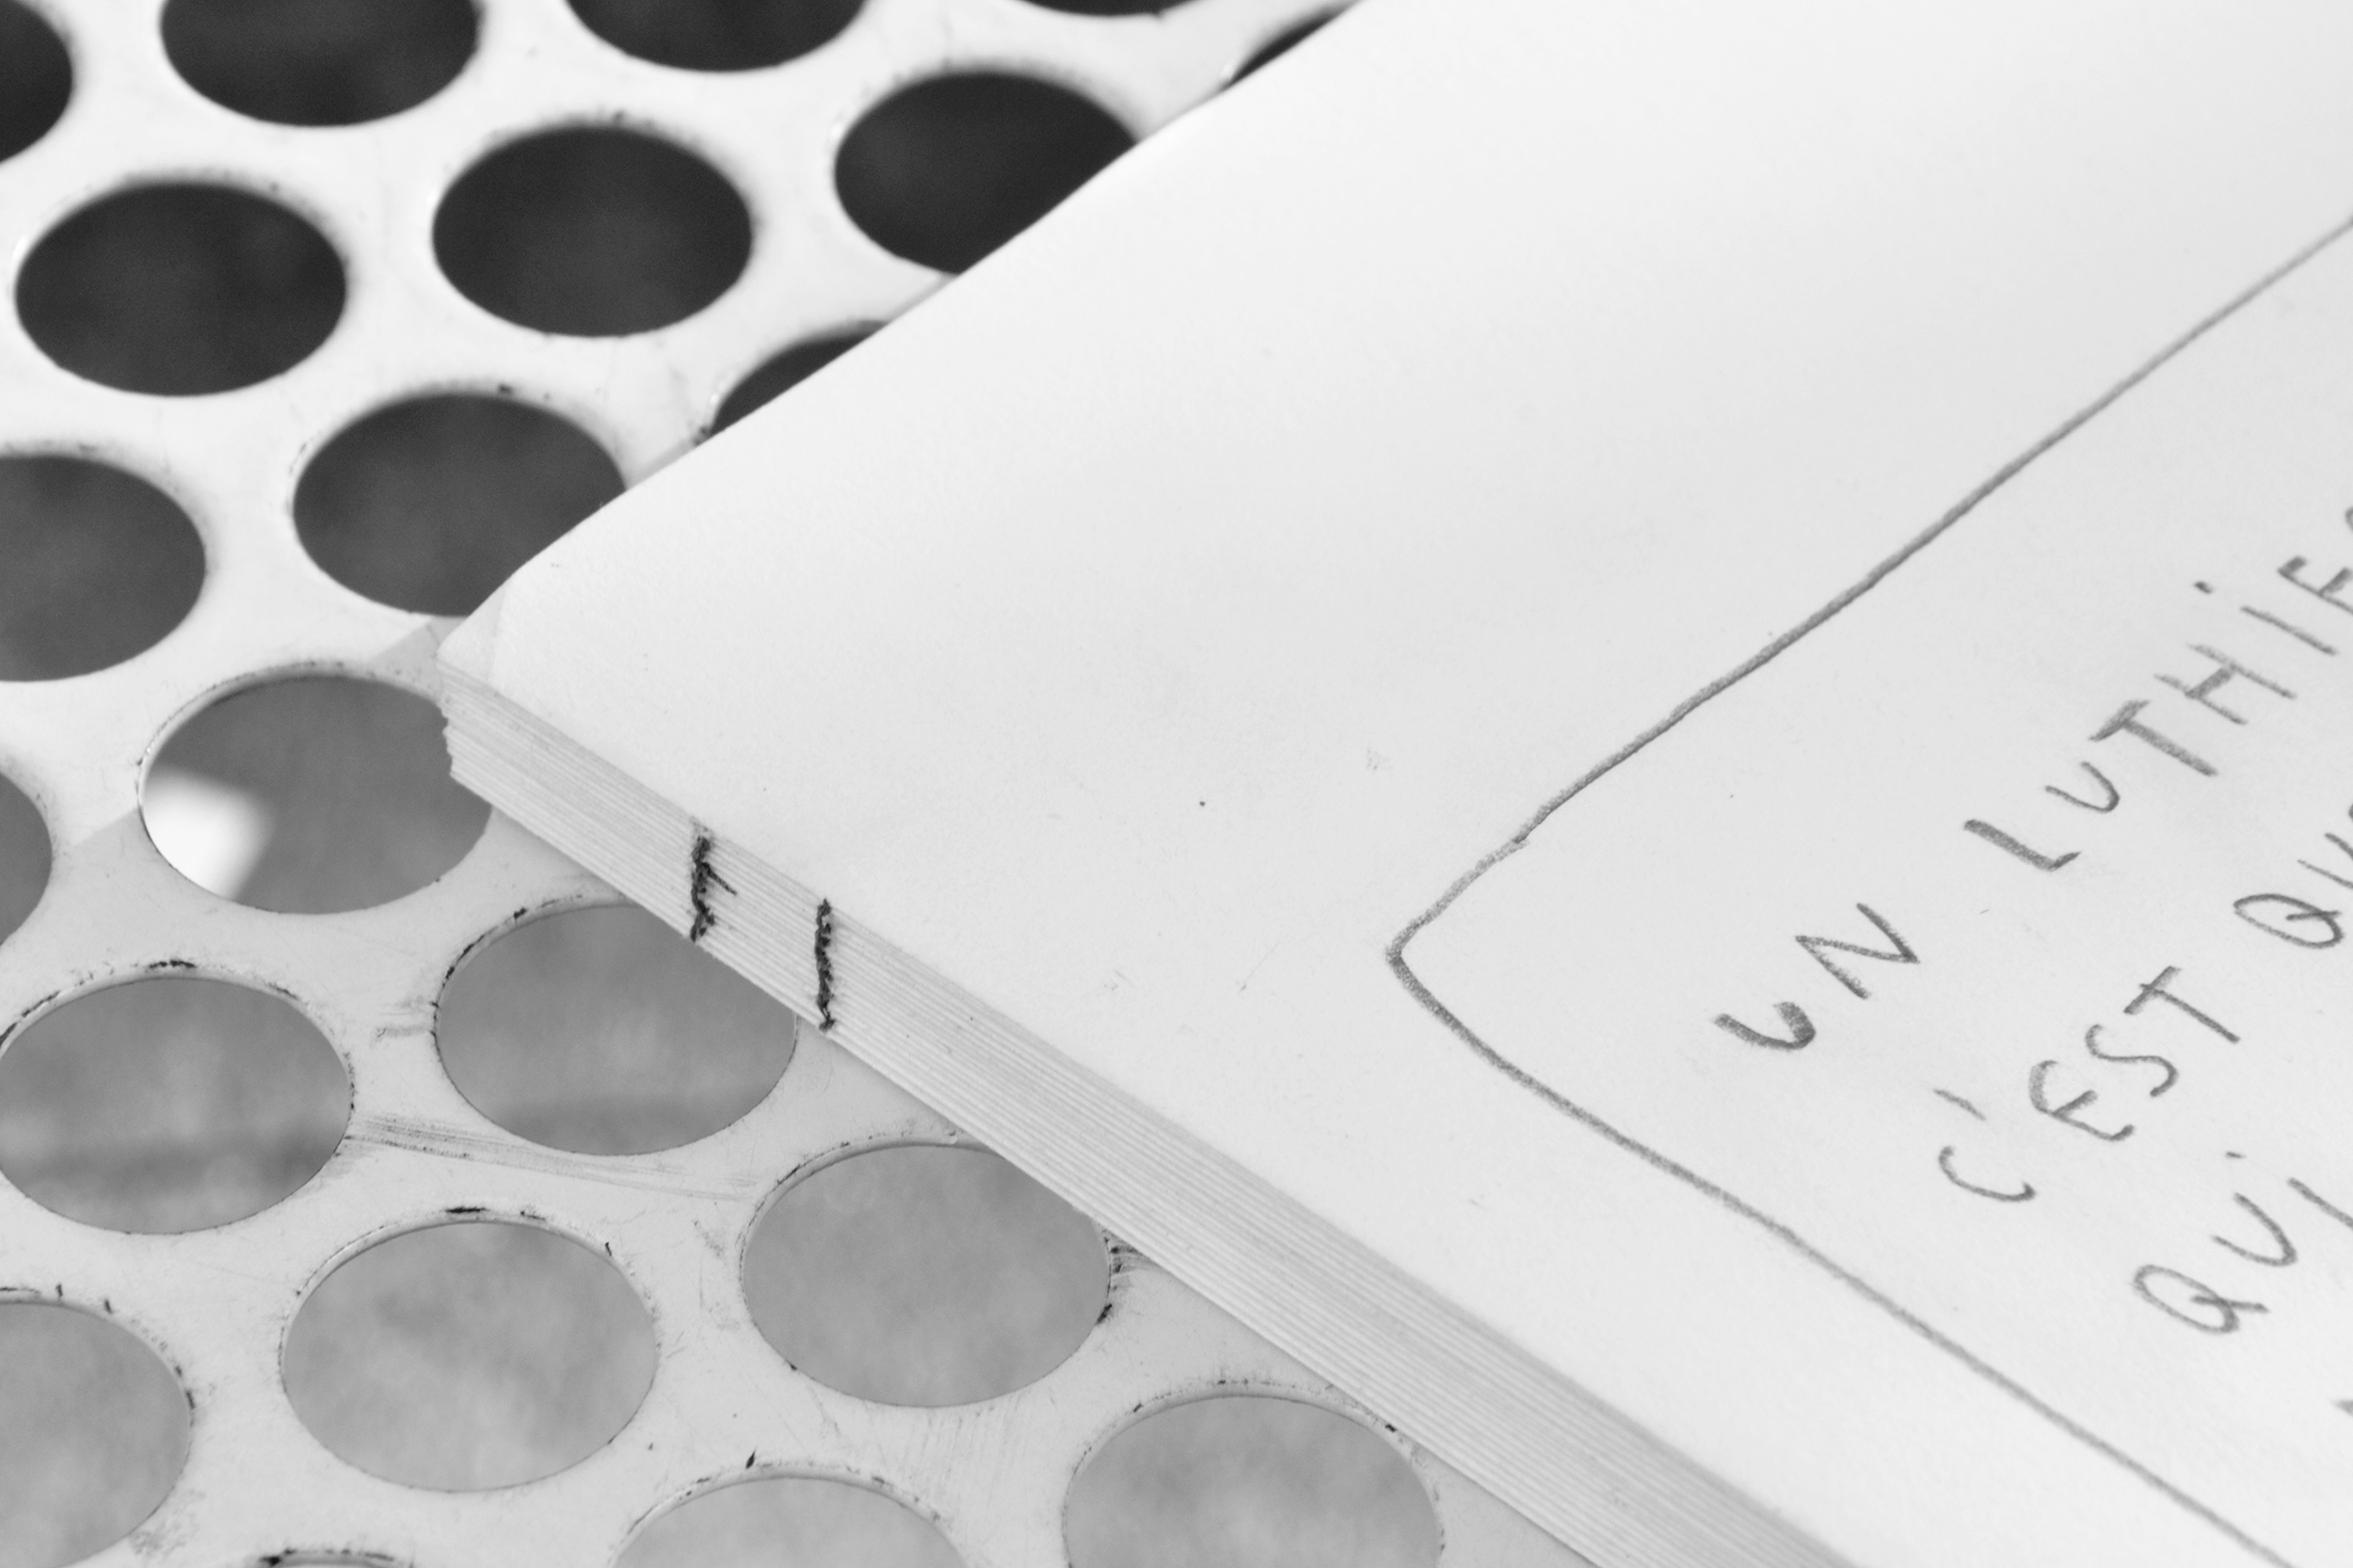 UN LUTHIE
C'EST QU
QUI